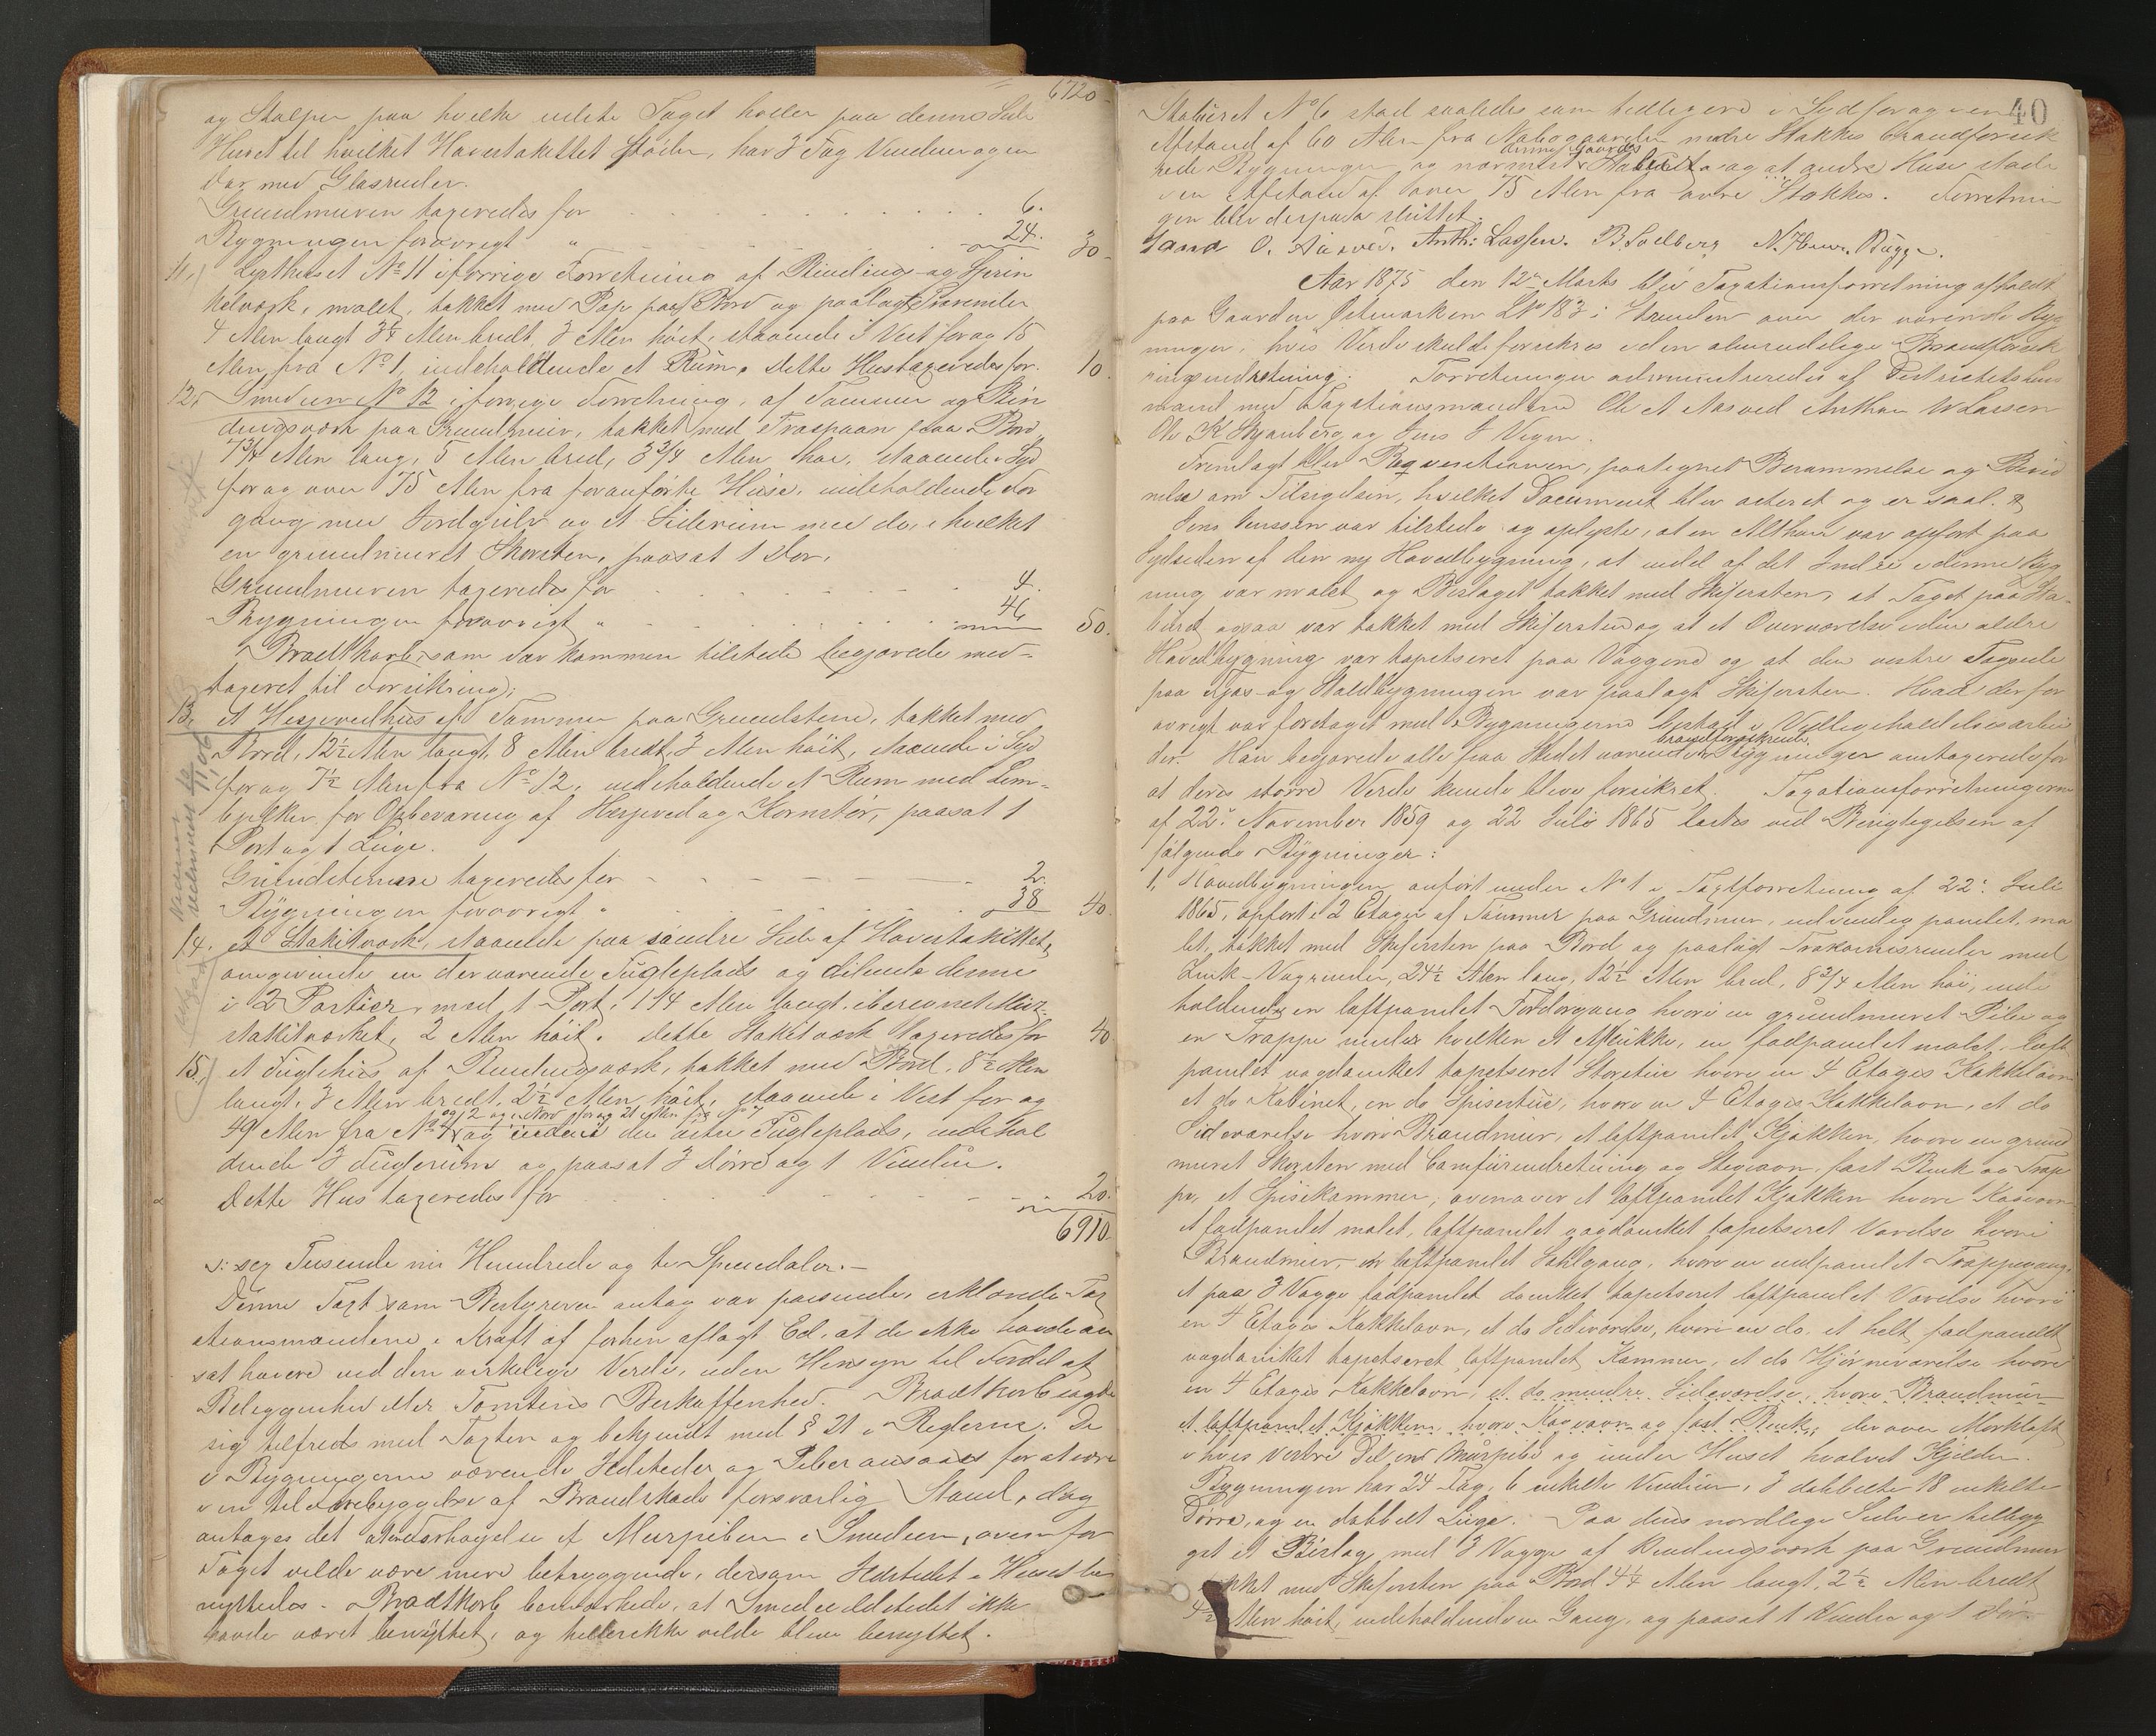 6720
og Stolper paa hvilke ublete Taget holler paa dennes Side
Huset til hvilket Havestakittet støder, har 3 Fag Vinduer og en
Dør med Glasruder.
Grundmuren taxeredes for 6.
Bygningen forøvrigt " 24. 30
11, Lysthuset No 11 i forrige Forretning af Bindings og Sprin
kelværk, malet, takket med Pap paa Bord og paalagt
4 Alen langt 3¼ Alen bredt, 3 Alen høit, staaende i Vest for og 15
Alen fra No 1, indeholdende et Rum. Dette Hus taxeredes for 10.
12, Smedien No 12 i forrige Forretning, af Tømmer og Bin
dingsværk paa Grundmuur, takket med Træspaan paa Bord
7¾ Alen lang, 5 Alen bred, 3¾ Alen høi, staaende i Syd
for og over 75 Alen fra foranførte Huse, indeholdende For
gang med Jordgulv og et Siderum med do, i hvilket
en grundmuret Skorsten, paasat 1 Dør.
Grundmuren taxeredes for 4.
Bygningen forøvrigt " 46 50.
Bradtkorb, som var kommen tilstede begjærede med-
taxeret til Forsikring:
13, et Hesjevedhuus af Tømmer paa Grundstene, takket med
Bord, 12½ Alen langt, 8 Alen bredt, 3 Alen høit, staaende i Syd
for og 7½ Alen fra No 12, indeholdende et Rum med Lem-
bjelker for Opbevaring af Hesjeved og Kornstør, paasat 1
Port og 1 Luge.
Grundstenene taxeredes for 2.
Bygningen forøvrigt " 38 40.
14. et Stakitværk, staaende paa søndre Side af Havestakittet,
omgivende en derværende Fugleplads og delende denne
i 2 Partier, med 1 Port, 114 Alen langt, iberegnet
stakitværket, 2 Alen høit. Dette Stakitværk taxeredes for 40
15, et Fuglehus af Bindingsværk, takket med Bord, 8½ Alen
langt, 3 Alen bredt, 2½ Alen høit, staaende i Vest for og
og 2 og i Nord for og 21 Alen fra No 7
49 Alen fra No 1 og indeni den Fugleplads, indehol
dende 3 Fuglerum og paasat 3 Dørre og 1 Vindue.
Dette Hus taxeredes for 20.
6910
s: sex Tusende ni Hundrede og ti Speciedaler.-
Denne Taxt som Bestyreren antog var passende, erklærede Tax
ationsmændene i Kraft af forhen aflagt Ed, at de ikke havde an
sat høiere end den virkelige Verdi, uden Hensyn til Fordel af
Beliggenhed eller Tomtens Beskaffenhed. Bradtkorb sagde
sig tilfreds med Taxten og bekjendt med § 21 i Reglerne. De
i Bygningerne værende Ildsteder og Piber ansaaes for at være
i en til Forebyggelse af Brandskade forsvarlig Stand, dog
antages det at Forhøielse af Murpiben i Smedien, ovenfor
Taget vilde være mere betryggende, dersom Ildstedet i Huset be
nyttedes. Bradtkorb bemærkede, at Smedieildstedet ikke
havde været benyttet, og hellerikke vilde blive benyttet.
40
Stabburet No 6 stod saaledes som tidligere i Syd for og i en
Afstand af 60 Alen fra Nabogaarden nedre Stokkes brandforsik
denne Gaards
rede Bygninger og nærmest Stabburet og at andre Huse stode
i en Afstand af over 75 Alen fra øvre Stokkes. Forretnin
gen blev derpaa sluttet.
Sand O. Aasved. Anth: Lassen. B. Solberg N. Bugge.
Aar 1875 den 12te Marts blev Taxationsforretning afholdt
paa Gaarden LNo 183 i Stranden over der værende Byg
ninger, hvis Verdi skulde forsikres i den almindelige Brandforsik
ringsindretning. Forretningen administreredes af Distriktets Lens
mand med Taxationsmændene Ole A Aasved Anthon W Lassen
Ole K Skjanberg og Jens J Vigen.
Fremlagt blev Requisitionen, paategnet Berammelse og Bevid
nelse om Tilsigelsen, hvilket Document blev acteret og er saal. &
Jens Jenssen var tilstede og oplyste, at en Althan var opført paa
Sydsiden af den ny Hovedbygning, at endel af det Indre i denne Byg
ning var malet og Beslaget takket med Skifersten, at Taget paa Sta-
buret ogsaa var takket med Skifersten og at et Overværelse i den ældre
Hovedbygning var tapetseret paa Væggene og at den vestre Tagside
paa Fjøs- og Staldbygningen var paalagt Skifersten. Hvad der for
øvrigt var foretaget med Bygningerne bestod i Vedligeholdelsesarbei
brandforsikrede
der. Han begjærede alle paa Stedet værende Bygninger omtaxerede for
at deres større Verdi kunde blive forsikret. Taxationsforretningerne
af 22de November 1859 og 22 Juli 1865 lastes ved Besigtigelsen af
følgende Bygninger:
1, Hovedbygningen anført under No 1 i Taxtforretning af 22de Juli
1865, opført i 2 Etager af Tømmer paa Grundmur, udvendig panelet, ma
let, takket med Skifersten paa Bord og paalagt Trækarnisrender med
Zink-Vagrender, 24½ Alen lang, 12½ Alen bred, 8¾ Alen høi, inde
holdende en loftpanelet Fordørgang hvori en grundmuret Pibe og
en Trappe under hvilken et Aflukke, en fadpanelet malet, loft
panelet vægdanket tapetseret Storstue hvori en 4 Etages Kakkelovn
et do Kabinet, en do Spisestue, hvori en 4 Etages Kakkelovn, et do
Sideværelse hvori Brandmur, et loftpanelet Kjøkken, hvori en grund
muret Skorsten med Comfurindretning og Stegeovn, fast Bænk og Trap
pe, et Spisekammer, ovenover et loftpanelet Kjøkken hvori Kogeovn
et fadpanelet malet, loftpanelet vægdanket tapetseret Værelse hvori
Brandmur, en loftpanelet Sahlgang, hvori en indpanelet Trappegang,
et paa 3 Vægge fadpanelet danket tapetseret loftpanelet Værelse hvori
en 4 Etages Kakkelovn, et do Sideværelse, hvori en do, et helt fadpanelet
vægdanket tapetseret loftpanelet Kammer, et do Hjørneværelse hvori
en 4 Etages Kakkelovn, et do mindre Sideværelse, hvori Brandmur
et loftpanelet Kjøkken, hvori Kogeovn og fast Bænk, derover Mørkloft
i hvis vestre Del en Murpibe og under Huset hvælvet Kjelder.
Bygningen har 24 Fag, 6 enkelte Vinduer, 3 dobbelte 18 enkelte
Dørre, og en dobbelt Luge. Paa dens nordlige Side er tilbyg
get et Bislag med 3 Vægge af Bindingsværk paa Grundmur
takket med Skifersten paa Bord 4¼ Alen langt, 2½ Alen bredt
4½ Alen høit, indeholdende en Gang, og paasat 1 Vindue og 1 Dør